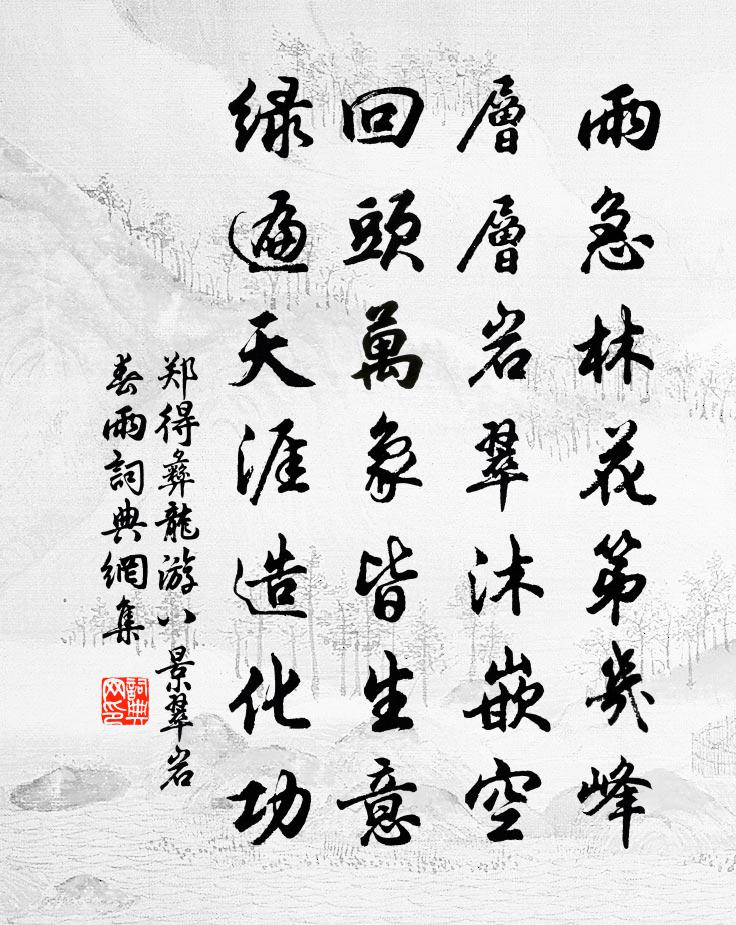 雨急林花第幾峰
層層岩翠沐嵌空
回頭萬象皆生意
綠遍天涯造化功
郑得彝龍游八景翠岩
春雨詞典網集
詞典网印